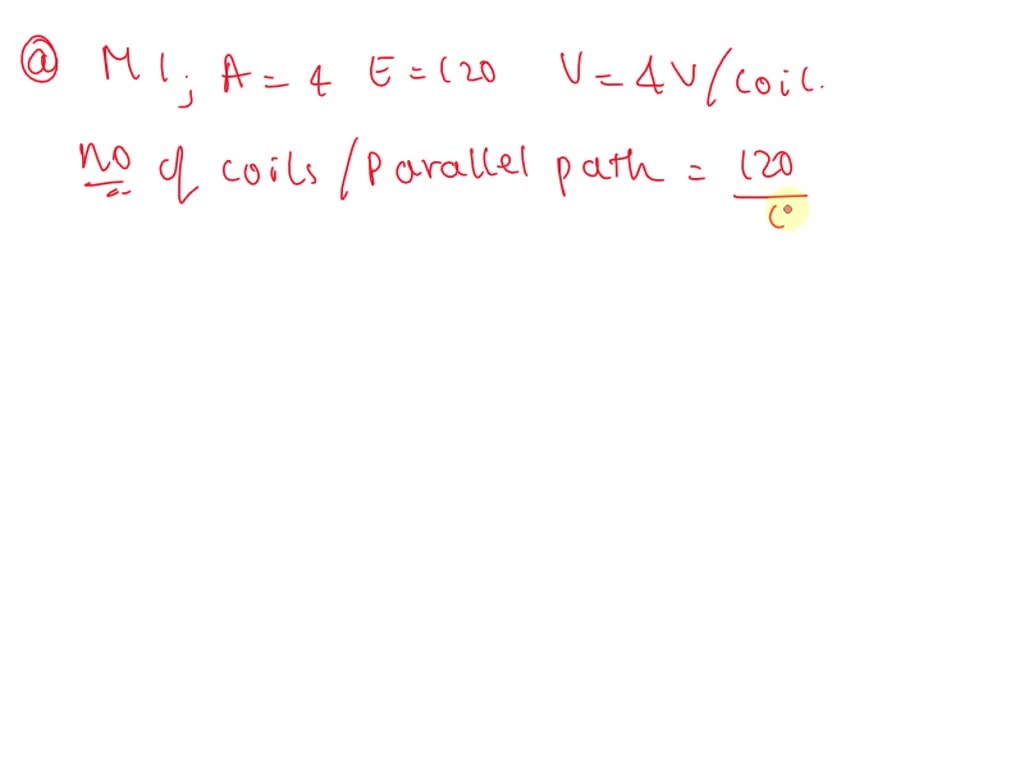 ⓐ M1; A = 4 E = 120 V = 4V/coil.
no of coils / parallel path = 120 /